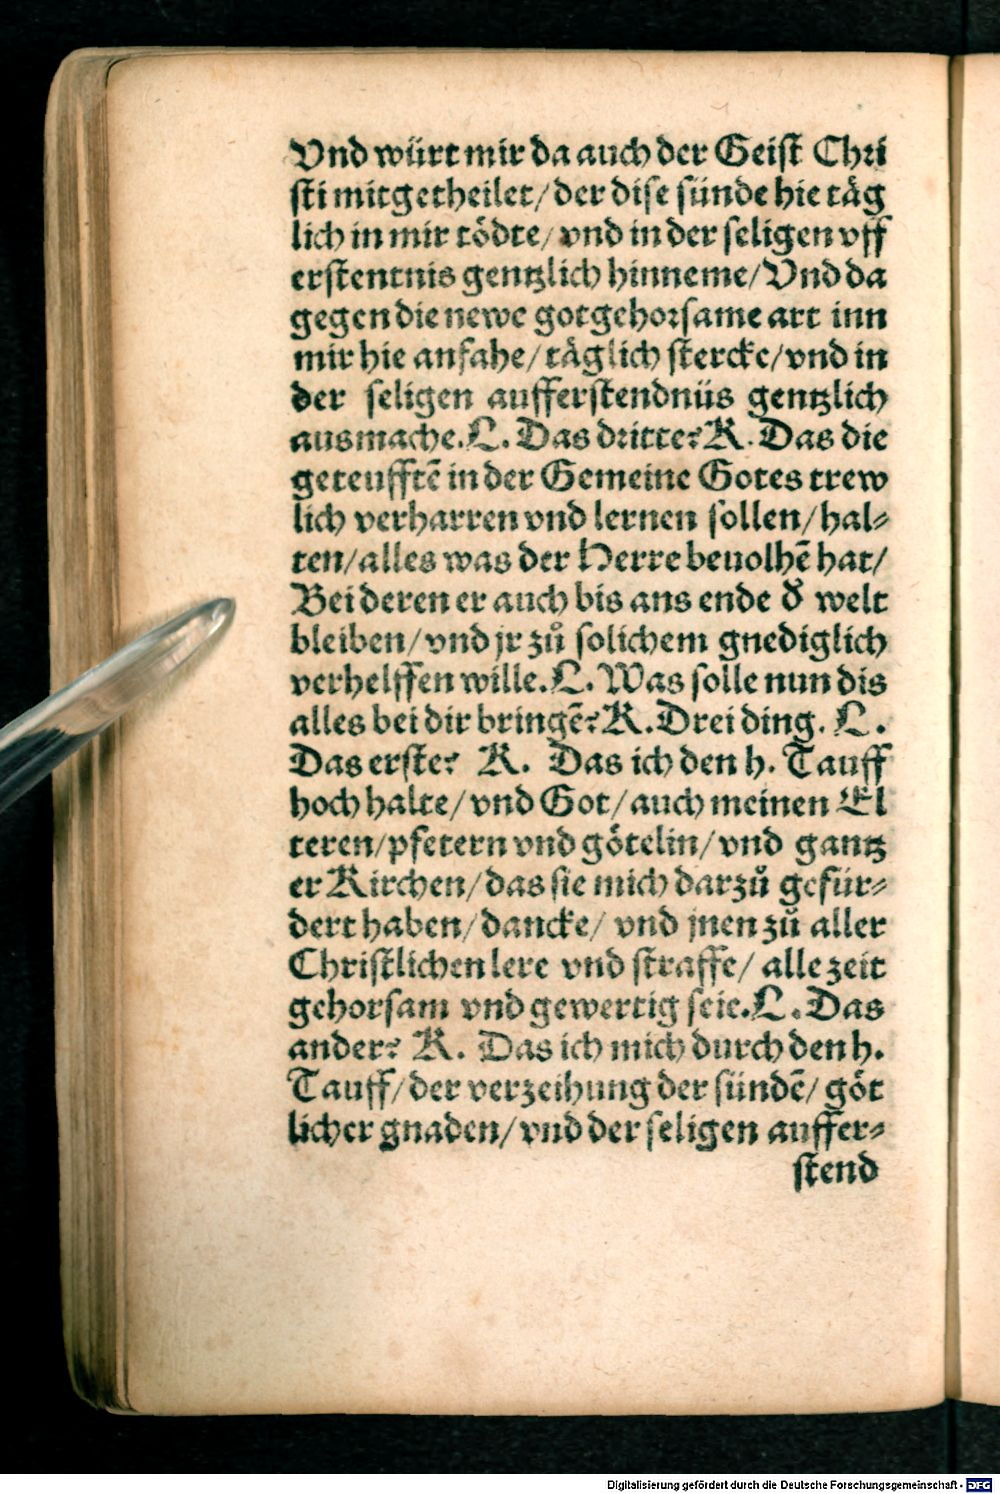 Vnd würt mir da auch der Geist Chri
sti mitgetheilet/ der dise sünde hie täg
lich in mir tödte/ vnd in der seligen vff
erstentnis gentzlich hinneme/ Vnd da
gegen die newe gotgehorsame art inn
mir hie anfahe/ täglich stercke/ vnd in
der seligen aufferstendnüs gentzlich
ausmache. L. Das dritte? K. Das die
geteufftē in der Gemeine Gotes trew
lich verharren vnd lernen sollen/ hal⸗
ten/ alles was der Herre beuolhē hat/
Bei deren er auch bis ans ende d̕ welt
bleiben/ vnd jr zů solichem gnediglich
verhelffen wille. L. Was solle nun dis
alles bei dir bringē? K. Drei ding. L.
Das erste? K. Das ich den h. Tauff
hoch halte/ vnd Got/ auch meinen El
teren/ pfetern vnd götelin/ vnd gantz
er Kirchen/ das sie mich darzů gefür⸗
dert haben/ dancke/ vnd jnen zů aller
Christlichen lere vnd straffe/ alle zeit
gehorsam vnd gewertig seie. L. Das
ander? K. Das ich mich durch den h.
Tauff/ der verzeihung der sündē/ göt
licher gnaden/ vnd der seligen auffer⸗
stend
Digitalisierung gefördert durch die Deutsche Forschungsgemeinschaft - DFG